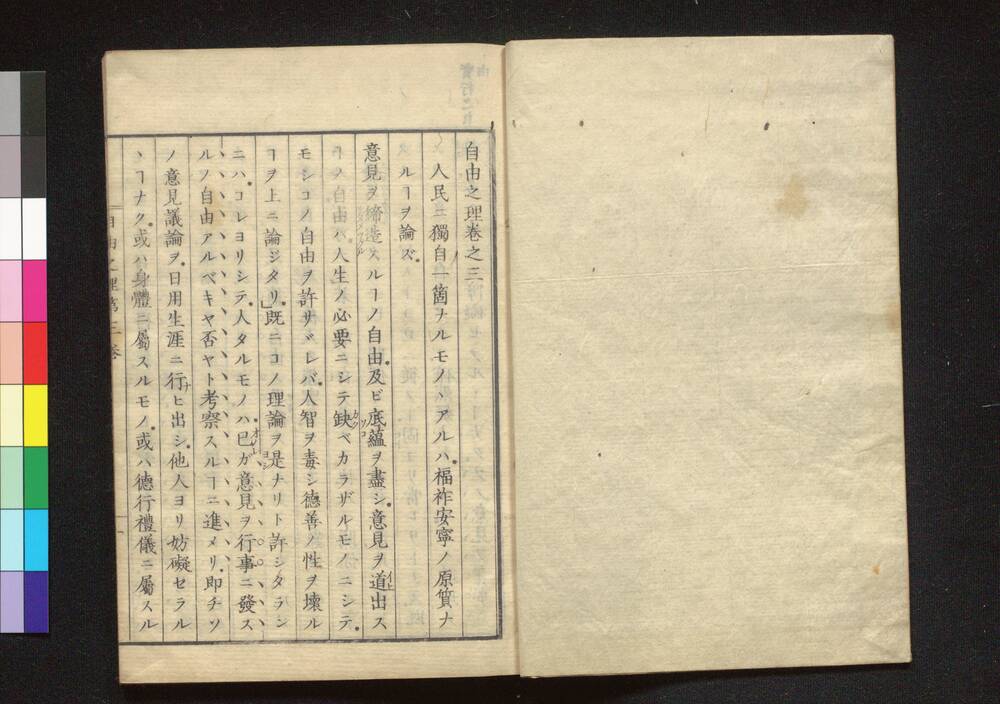 自由之理巻之三
人民ニ獨自一箇ナルモノヽアルハ福祚安寧ノ原質ナ
ルヿヲ論ズ
意見ヲ締造スルヿノ自由及ビ底蘊ヲ盡シ意見ヲ道出ス
ルノ自由ハ人生ノ必要ニシテ缺ベカラザルモノニシテ
モシコノ自由ヲ許サヾレバ人智ヲ毒シ德善ノ性ヲ壞ル
ヿヲ上ニ論ジタリ」既ニコノ理論ヲ是ナリト許シタラン
ニハコレヨリシテ人タルモノハ巳ガ意見ヲ行事ニ發ス
ルノ自由アルベキヤ否ヤト考察スルヿニ進メリ即チソ
ノ意見議論ヲ日用生涯ニ行ヒ出シ他人ヨリ妨礙セラル
ヽヿナク或ハ身體ニ屬スルモノ或ハ德行禮儀ニ屬スル
自由之理第三卷